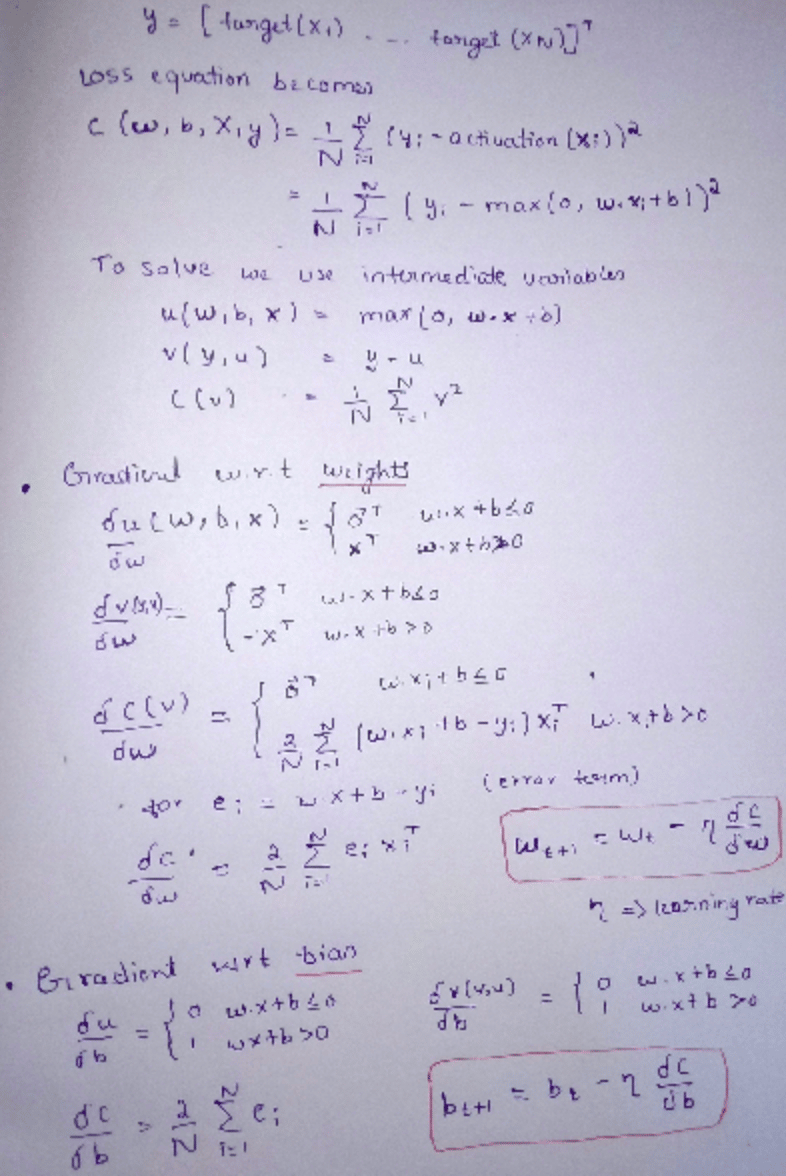 y = [ target(x₁) .... target (x_N)]ᵀ
Loss equation becomes
C (w, b, X, y) = 1/N Σ_{i=1}^{N} (yᵢ - activation (xᵢ))²
= 1/N Σ_{i=1}^{N} ( yᵢ - max(0, w.xᵢ+b))²
To solve we use intermediate variables
u(w, b, x) = max(0, w.x+b)
v(y, u) = y - u
C(v) = 1/N Σ_{i=1}^{N} v²
• Gradient w.r.t weights
δu(w, b, x)/δw = { 0⃗ᵀ w.x+b≤0
xᵀ w.x+b>0
δv(y,u)/δw = { 0⃗ᵀ w.x+b≤0
-xᵀ w.x+b>0
δC(v)/δw = { 0⃗ᵀ w.xᵢ+b≤0
2/N Σ_{i=1}^{N} (w.xᵢ+b-yᵢ)xᵢᵀ w.xᵢ+b>0
• for eᵢ = w.x+b-yᵢ (error term)
δC/δw = 2/N Σ_{i=1}^{N} eᵢ xᵢᵀ
w_{t+1} = w_t - η δC/δw
η => learning rate
• Gradient wrt bias
δu/δb = { 0 w.x+b≤0
1 wx+b>0
δv(y,u)/δb = { 0 w.x+b≤0
1 w.x+b>0
δC/δb = 2/N Σ_{i=1}^{N} eᵢ
b_{t+1} = b_t - η δC/δb